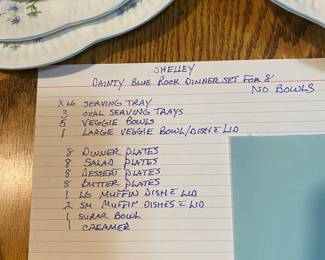 SHELLEY
DAINTY BLUE ROCK DINNER SET FOR 8
NO BOWLS
X LG SERVING TRAY
3 OVAL SERVING TRAYS
5 VEGGIE BOWLS
1 LARGE VEGGIE BOWL/DISH & LID
8 DINNER PLATES
8 SALAD PLATES
8 DESSERT PLATES
8 BUTTER PLATES
1 LG MUFFIN DISH & LID
2 SM MUFFIN DISHES & LID
1 SUGAR BOWL
1 CREAMER